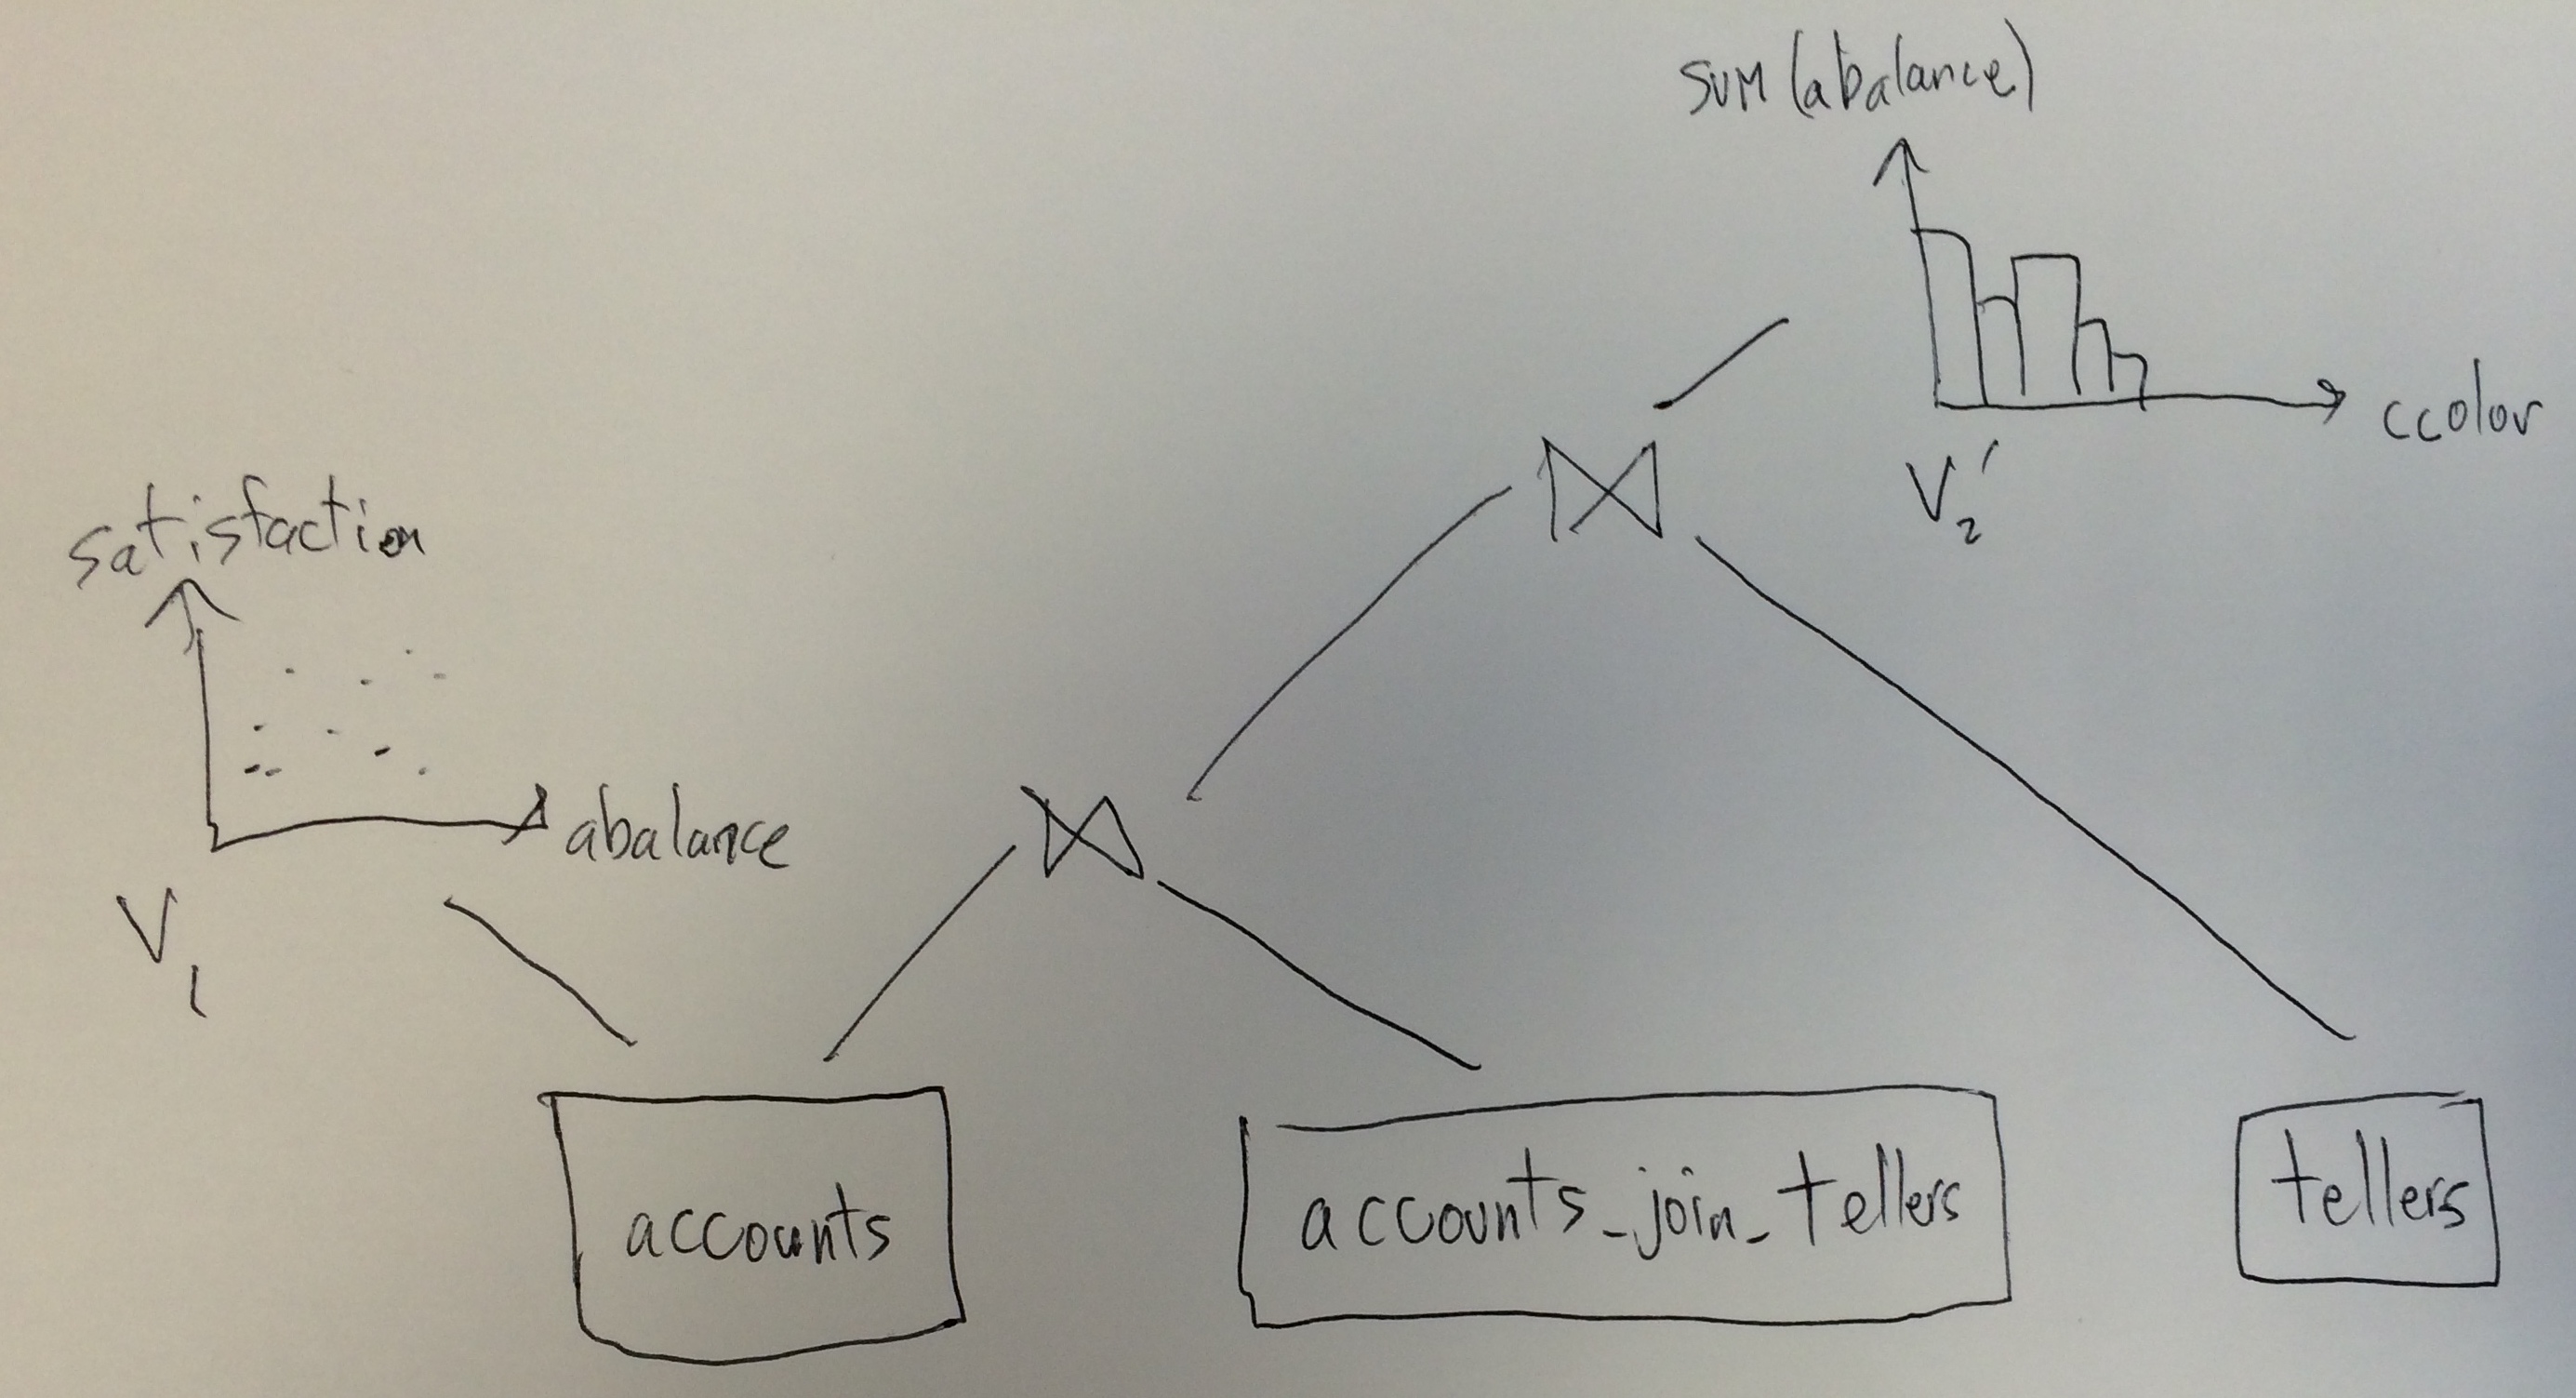 SUM (abalance)
ccolor
V2'
satisfaction
abalance
V1
accounts
accounts_join_tellers
tellers